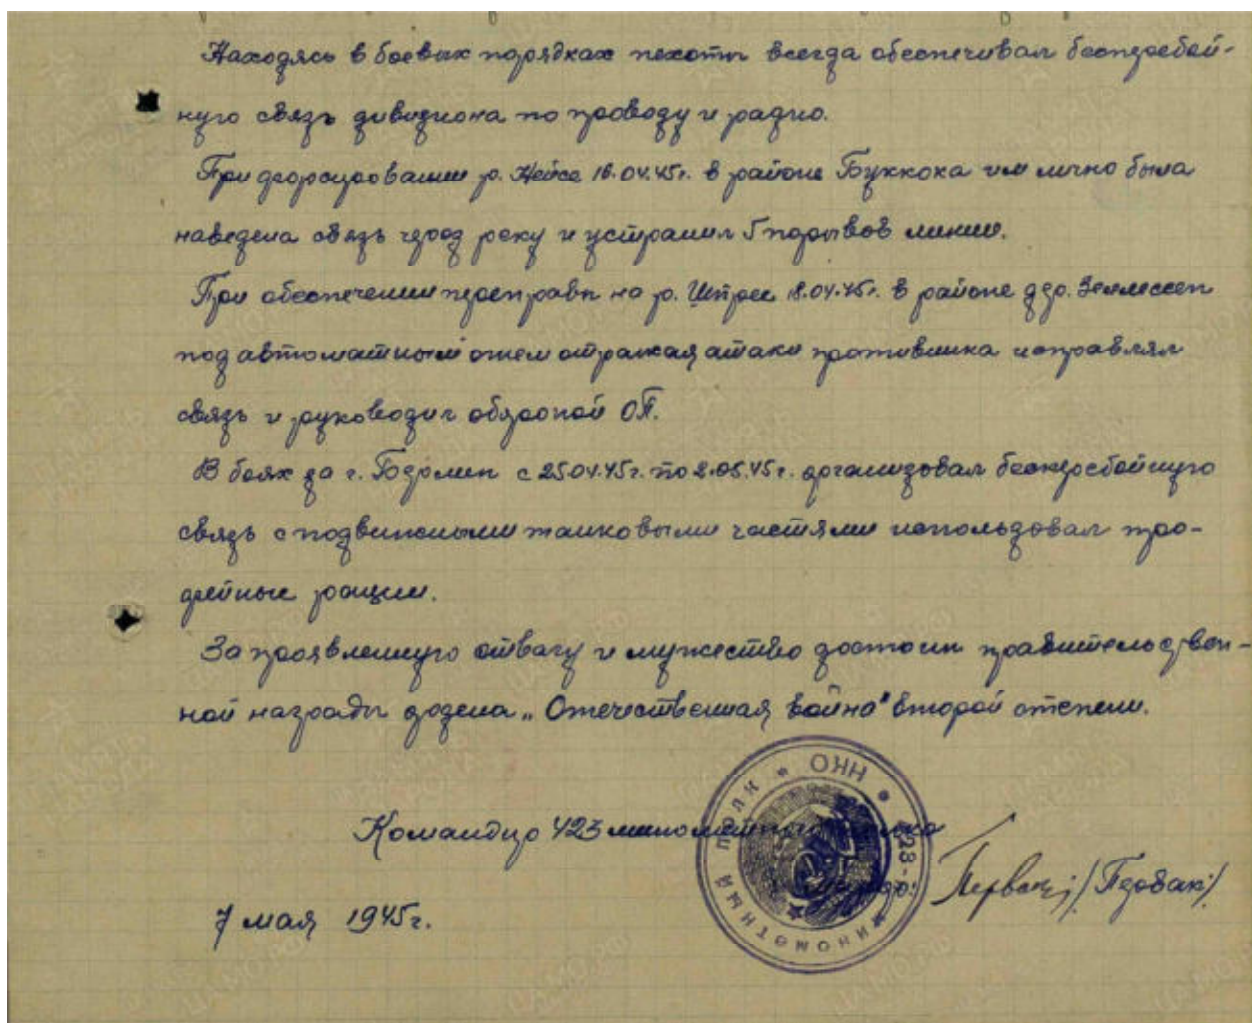 Находясь в боевых порядках пехоты всегда обеспечивал бесперебой-
ную связь дивизиона по проводу и радио.
При форсировании р. Нейсе 16.04.45г. в районе Буккока им лично была
наведена связь через реку и устранил 5 порывов линии.
При обеспечении переправы на р. Шпрее 18.04.45г. в районе дер.
под автоматным огнем отражая атаки противника исправлял
связь и руководил обороной ОП.
В боях за г. Берлин с 25.04.45г. по 2.05.45г. организовал бесперебойную
связь с подвижными танковыми частями использовал тро-
фейные рации.
За проявленную отвагу и мужество достоин правительствен-
ной награды ордена „Отечественная война" второй степени.
Командир 423 минометного полка
/Первак/
7 мая 1945г.
НКО * 423-й МИНОМЕТНЫЙ ПОЛК *